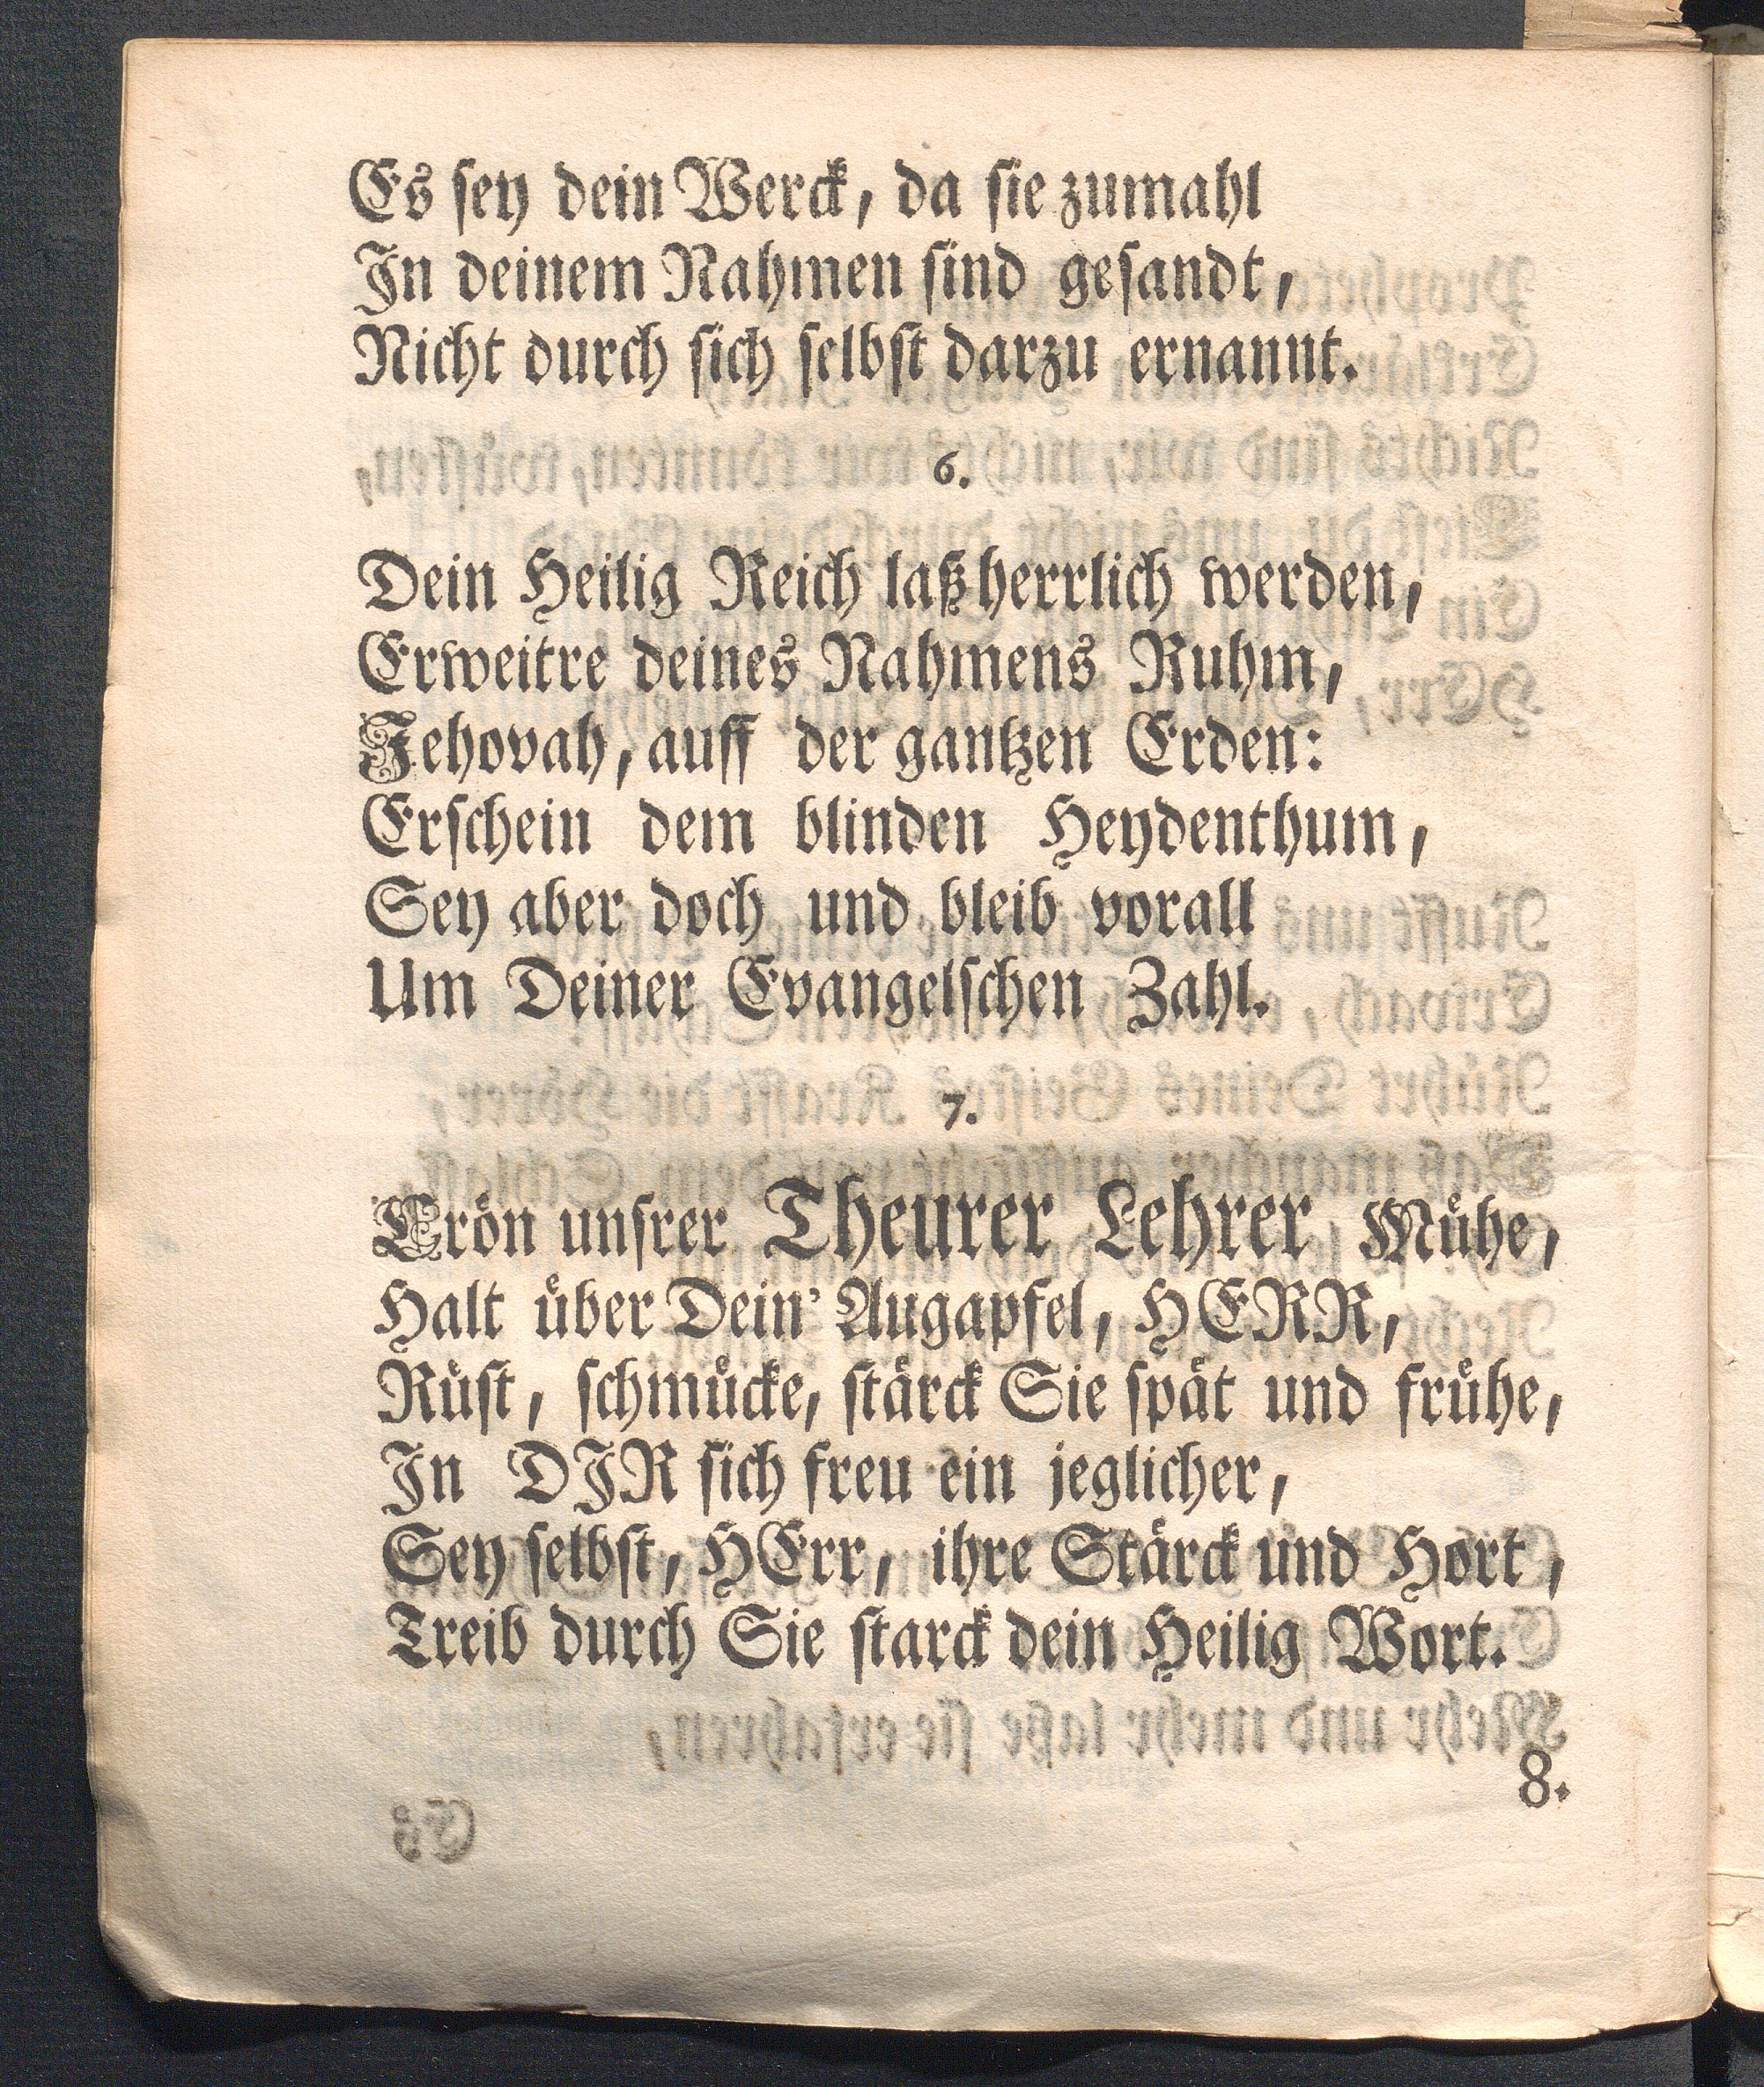 Es ſey dein Werck, da ſie zumahl
In deinem Nahmen ſind geſandt,
Nicht durch ſich ſelbſt darzu ernannt.
6.
Dein Heilig Reich laß herrlich werden,
Erweitre deines Nahmens Ruhm,
Jehovah, auff der gantzen Erden:
Erſchein dem blinden Heydenthum,
Sey aber doch und bleib vorall
Um Deiner Evangelſchen Zahl.
7.
Crön unſrer Theurer Lehrer Mühe,
Halt über Dein' Augapfel, HERR,
Rüſt, ſchmücke, ſtärck Sie ſpät und frühe,
In DIR ſich freu ein jeglicher,
Sey ſelbſt, HErr, ihre Stärck und Hort,
Treib durch Sie ſtarck dein Heilig Wort.
8.